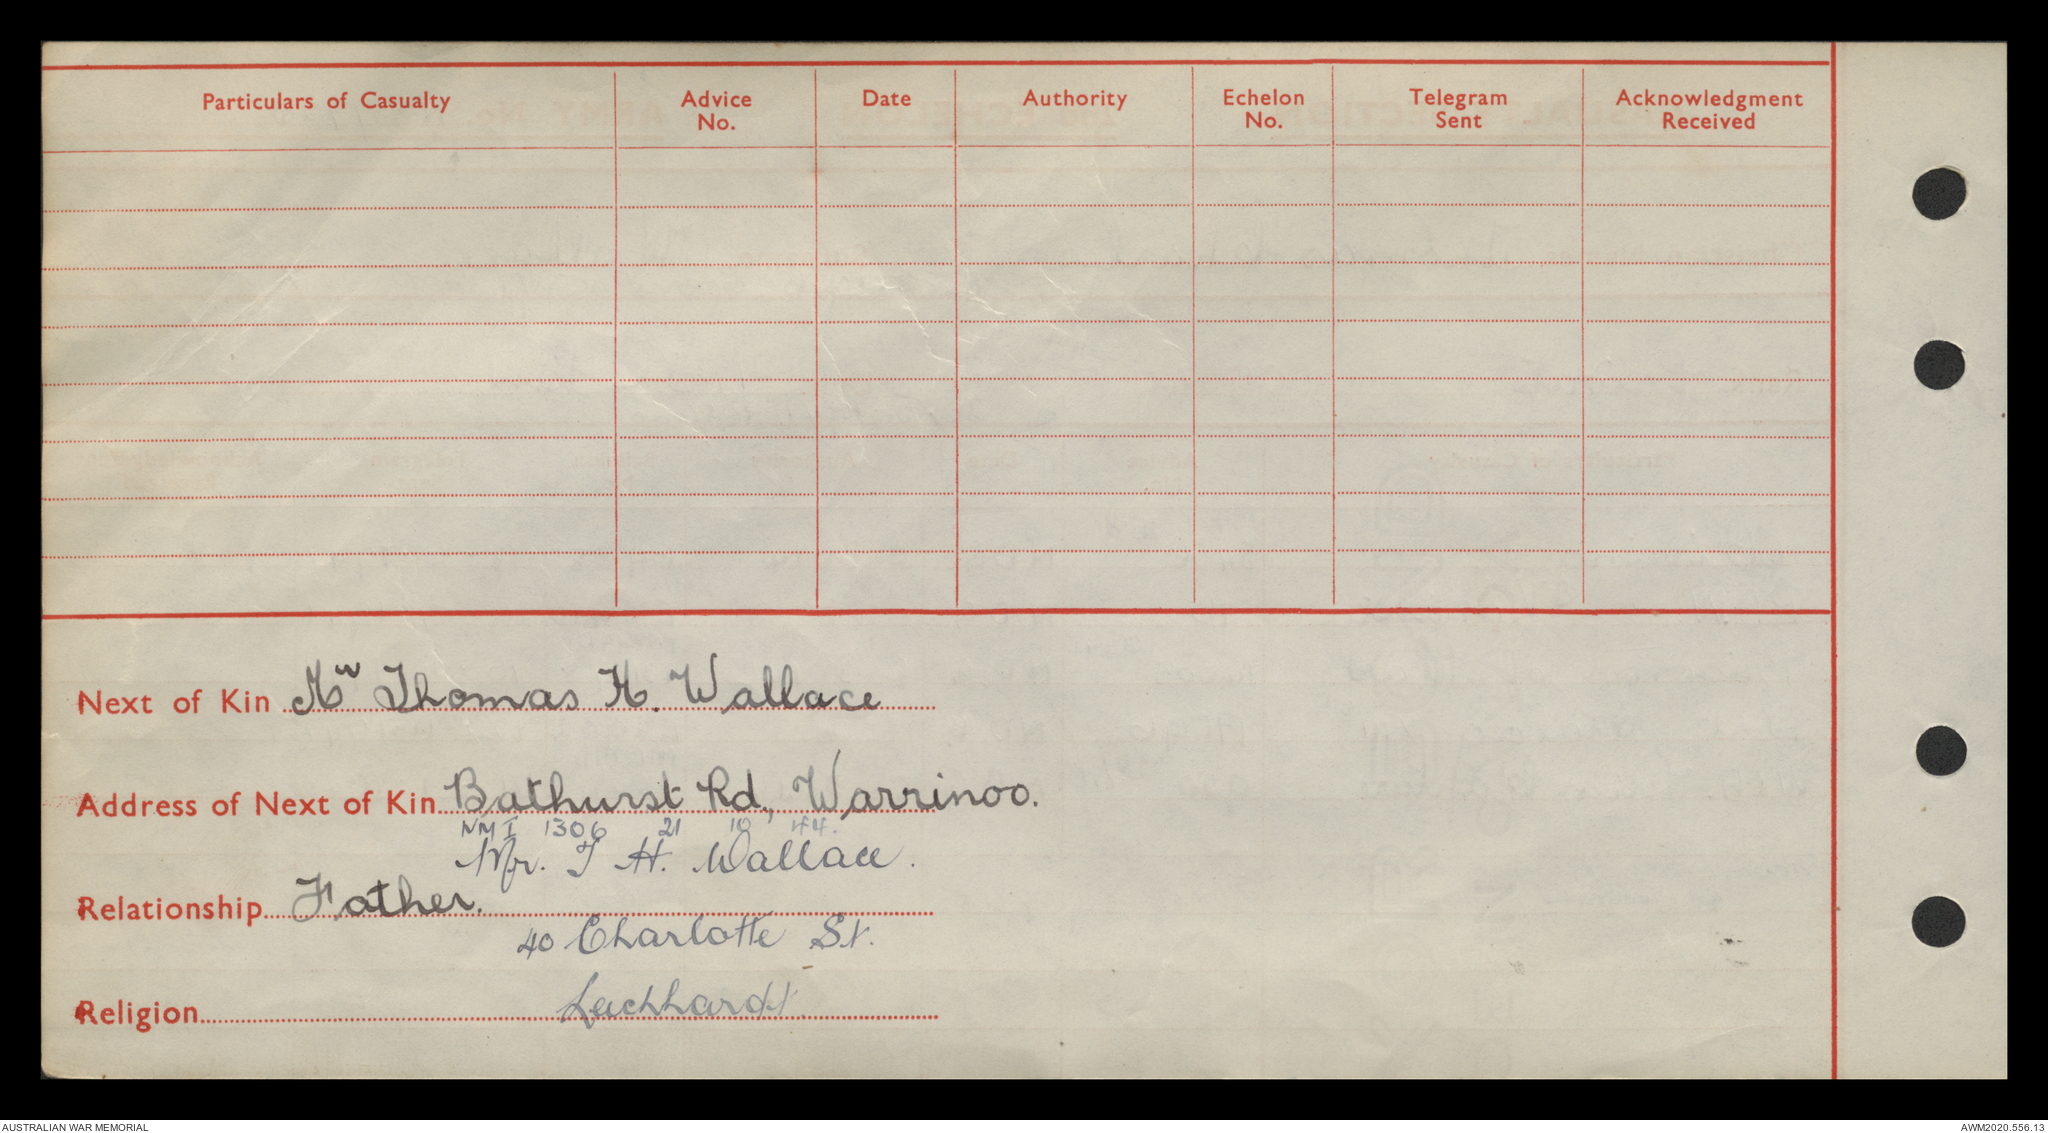 Particulars of Casualty Advice No. Date Authority Echelon No. Telegram Sent Acknowledgment Received
Next of Kin Mr Thomas H. Wallace
Address of Next of Kin Bathurst Rd, Warrinoo.
NMI 1306 21 10 44.
Mr. T H. Wallace.
Relationship Father.
40 Charlotte St.
Leichhardt.
Religion
AUSTRALIAN WAR MEMORIAL
AWM2020.556.13